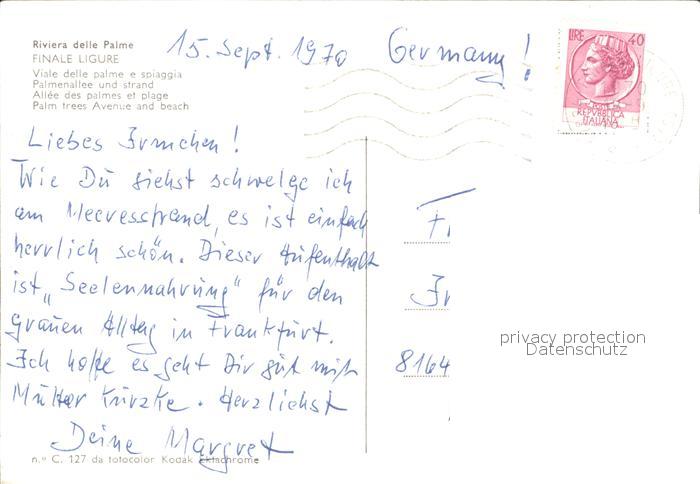 Riviera delle Palme
FINALE LIGURE
Viale delle palme e spiaggia
Palmenallee und strand
Allée des palmes et plage
Palm trees Avenue and beach
15. Sept. 1970 Germany!
LIRE 40
REPVBBLICA
ITALIANA
Liebes Irmchen!
Wie Du siehst schwelge ich
am Meeresstrand, es ist einfach
herrlich schön. Dieser Aufenthalt
ist „Seelennahrung" für den
grauen Alltag in Frankfurt.
Ich hoffe es geht Dir gut mit
Mutter Kurzke. Herzlichst
Deine Margret
Fr
Ir
8164
privacy protection
Datenschutz
n.º C. 127 da fotocolor Kodak Ektachrome